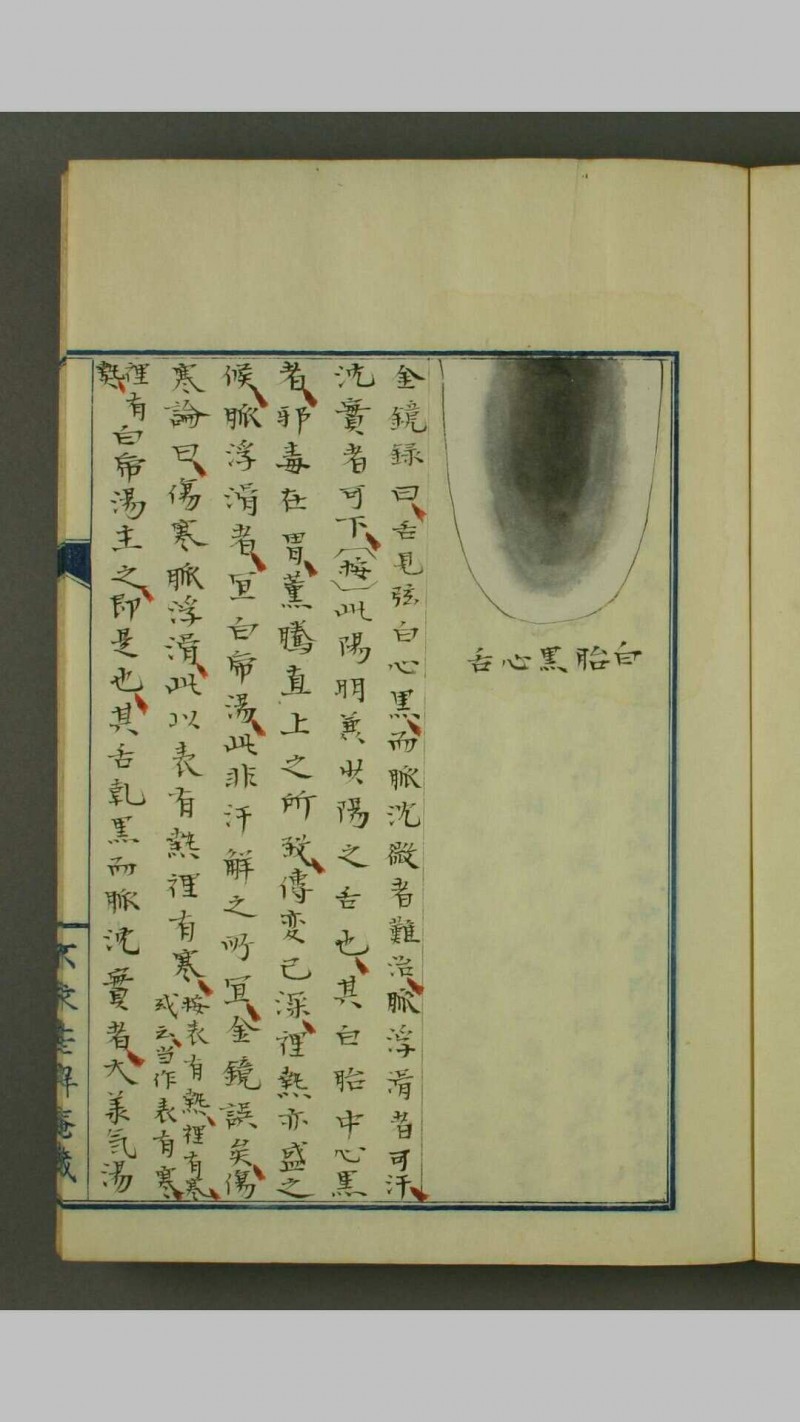 白胎黑心舌
金鏡録曰舌見弦白心黑而脈沈微者難治脈浮滑者可汗
沈實者可下(按)此陽明兼少陽之舌也其白胎中心黑
者邪毒在胃薫騰直上之所致傳変已深裡熱亦盛之
候脈浮滑者宜白帝湯此非汗解之所宜金鏡誤矣傷
寒論曰傷寒脈浮滑此以表有熱裡有寒
按表有熱裡有寒
或云当作表有寒
裡有
熱
白帝湯主之即是也其舌乾黑而脈沈實者大兼氣湯